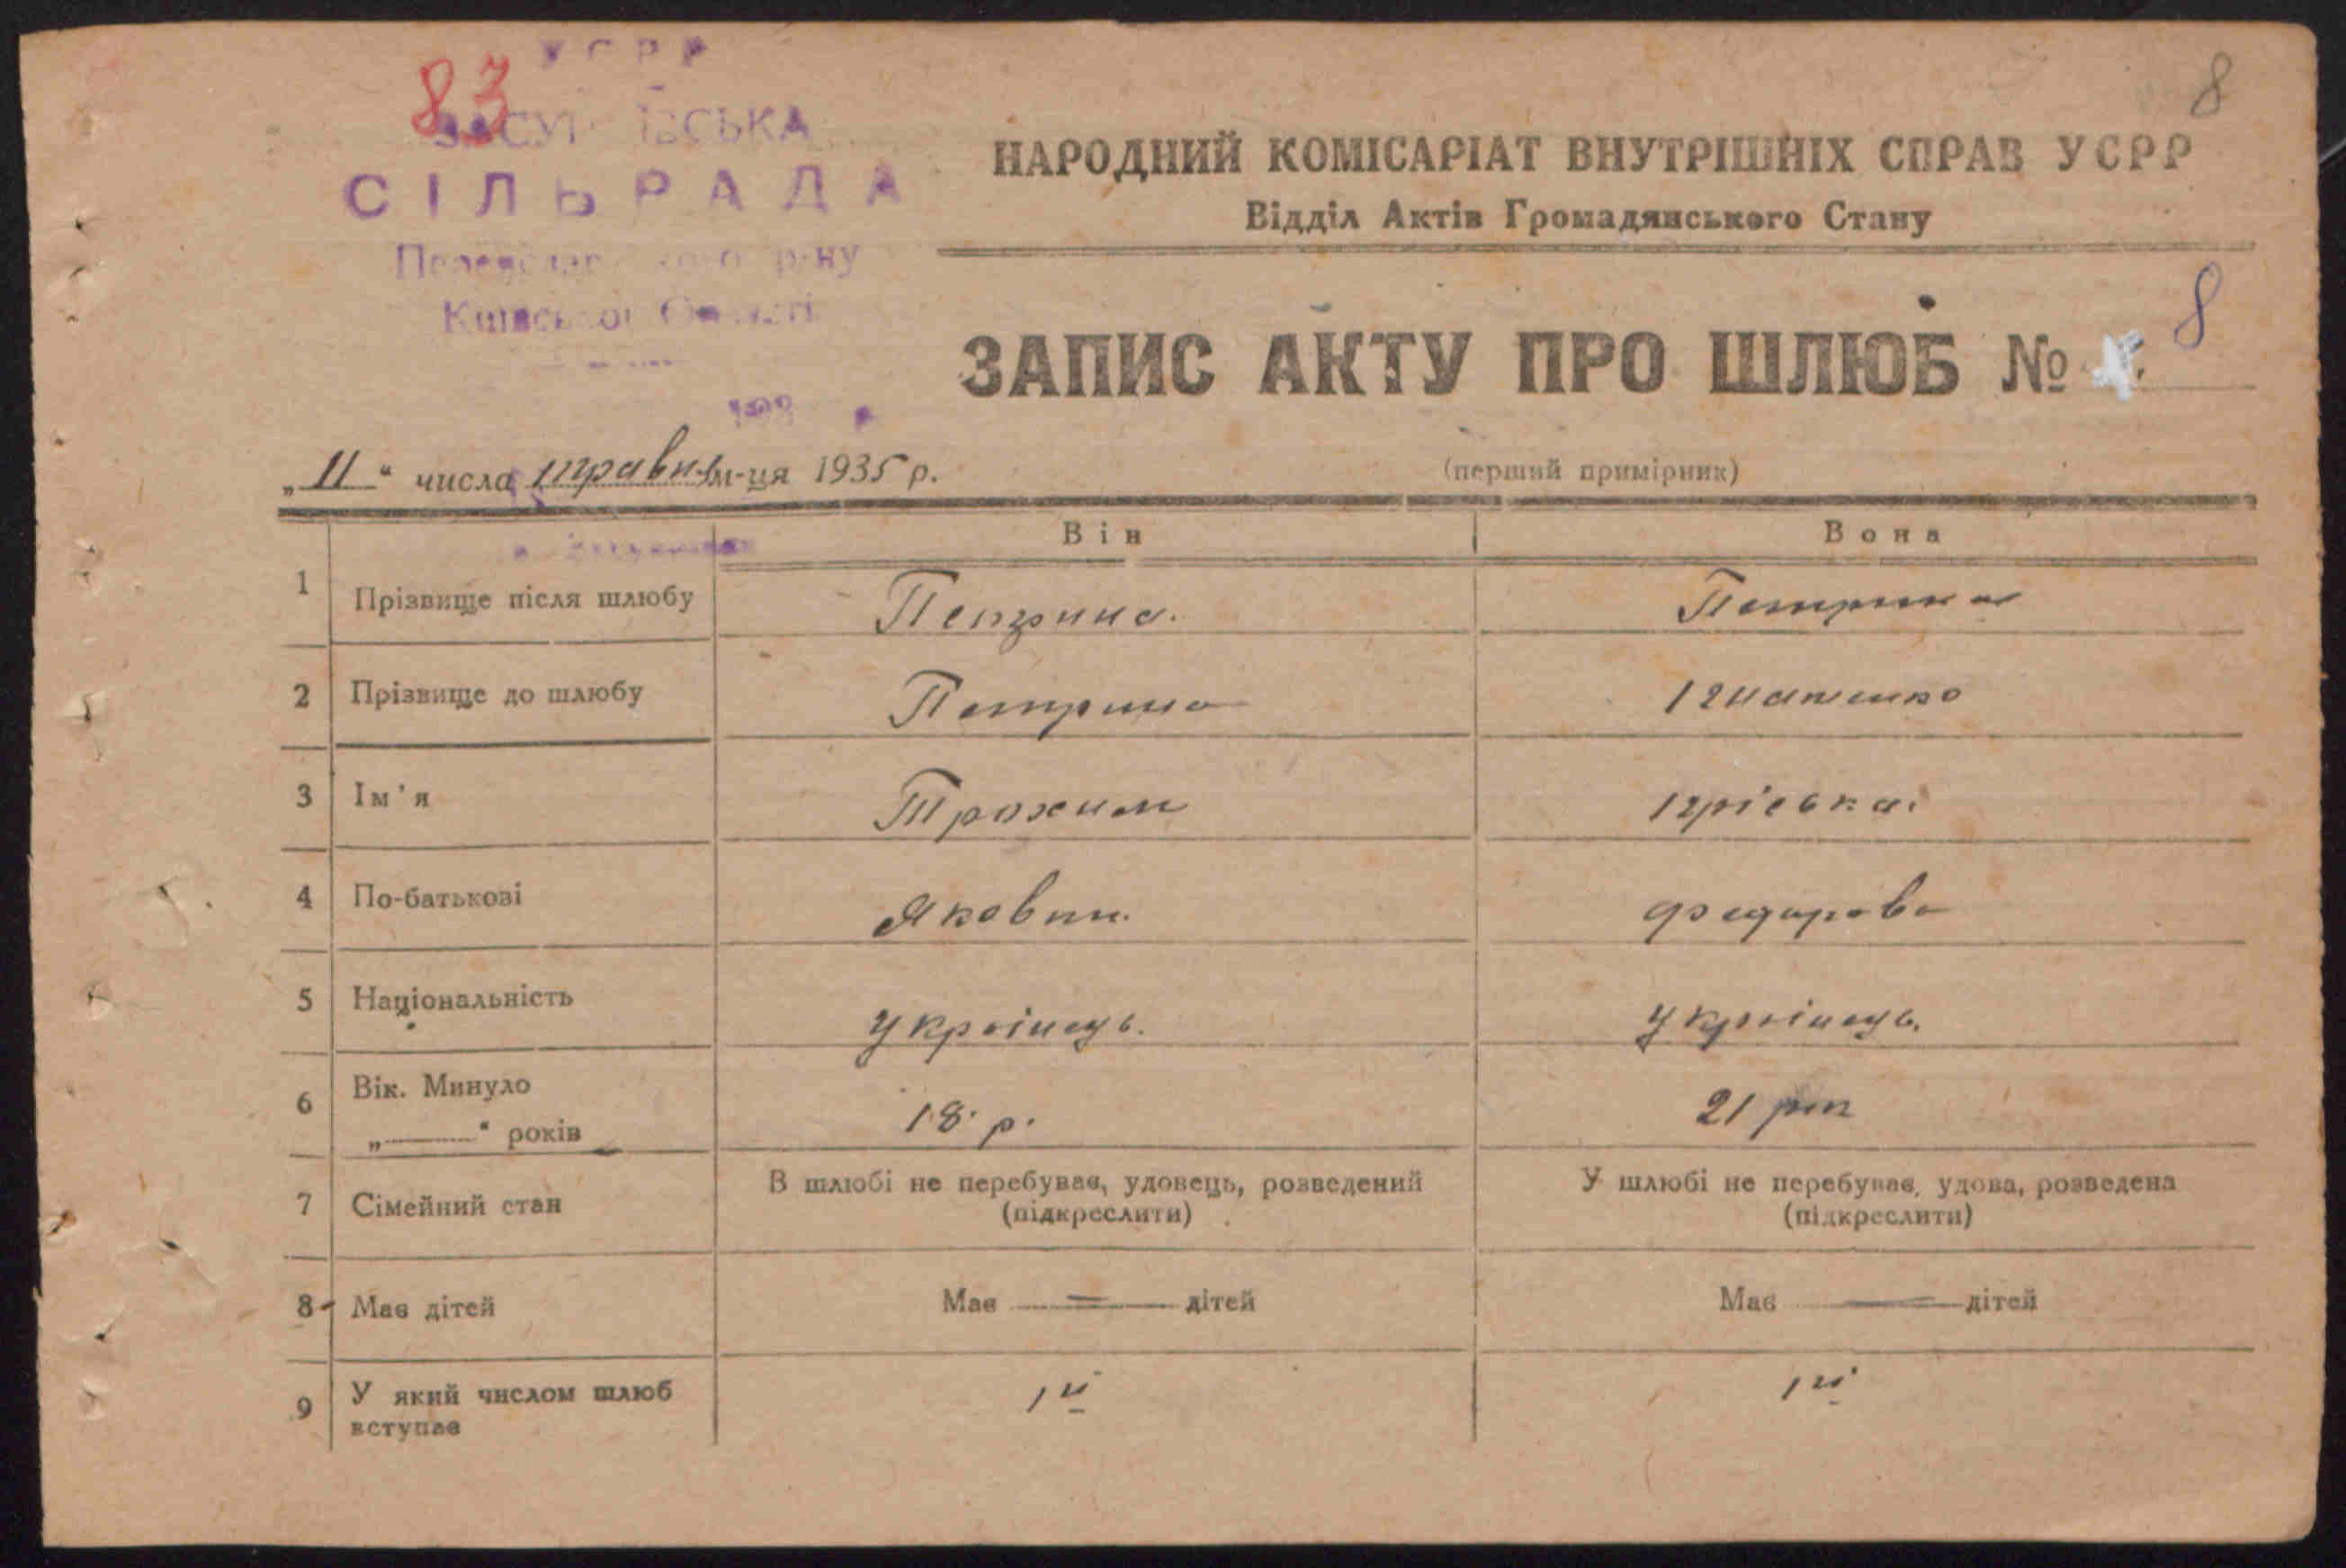 8
83
УСРР
СІЛЬРАДА
р-ну
НАРОДНИЙ КОМІСАРІАТ ВНУТРІШНІХ СПРАВ УСРР
Відділ Актів Громадянського Стану
ЗАПИС АКТУ ПРО ШЛЮБ № 8
„11“ числа травня м-ця 1935 р.
(перший примірник)
Він Вона
1 Прізвище після шлюбу Петрина. Петрина
2 Прізвище до шлюбу Петрина Ігнатенко
3 Ім'я Трохим
4 По-батькові Яковин. Федорова
5 Національність Українець. Українець.
6 Вік. Минуло
„ “ років 18 р. 21 рік
7 Сімейний стан В шлюбі не перебував, удовець, розведений У шлюбі не перебував, удова, розведена
(підкреслити) (підкреслити)
8 Має дітей Має = дітей Має — дітей
9 У який числом шлюб 1й 1й
вступає